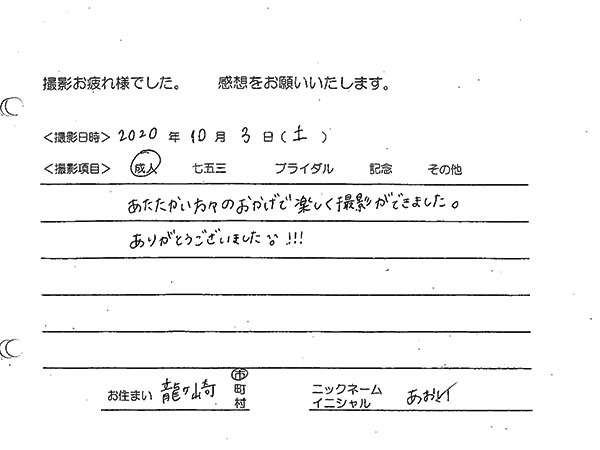 撮影お疲れ様でした。 感想をお願いいたします。
＜撮影日時＞ 2020 年 10 月 3 日(土)
＜撮影項目＞ 成人 七五三 ブライダル 記念 その他
あたたかい方々のおかげで楽しく撮影ができました。
ありがとうございました !!!
お住まい 龍ヶ崎 市 町 村
ニックネーム
イニシャル